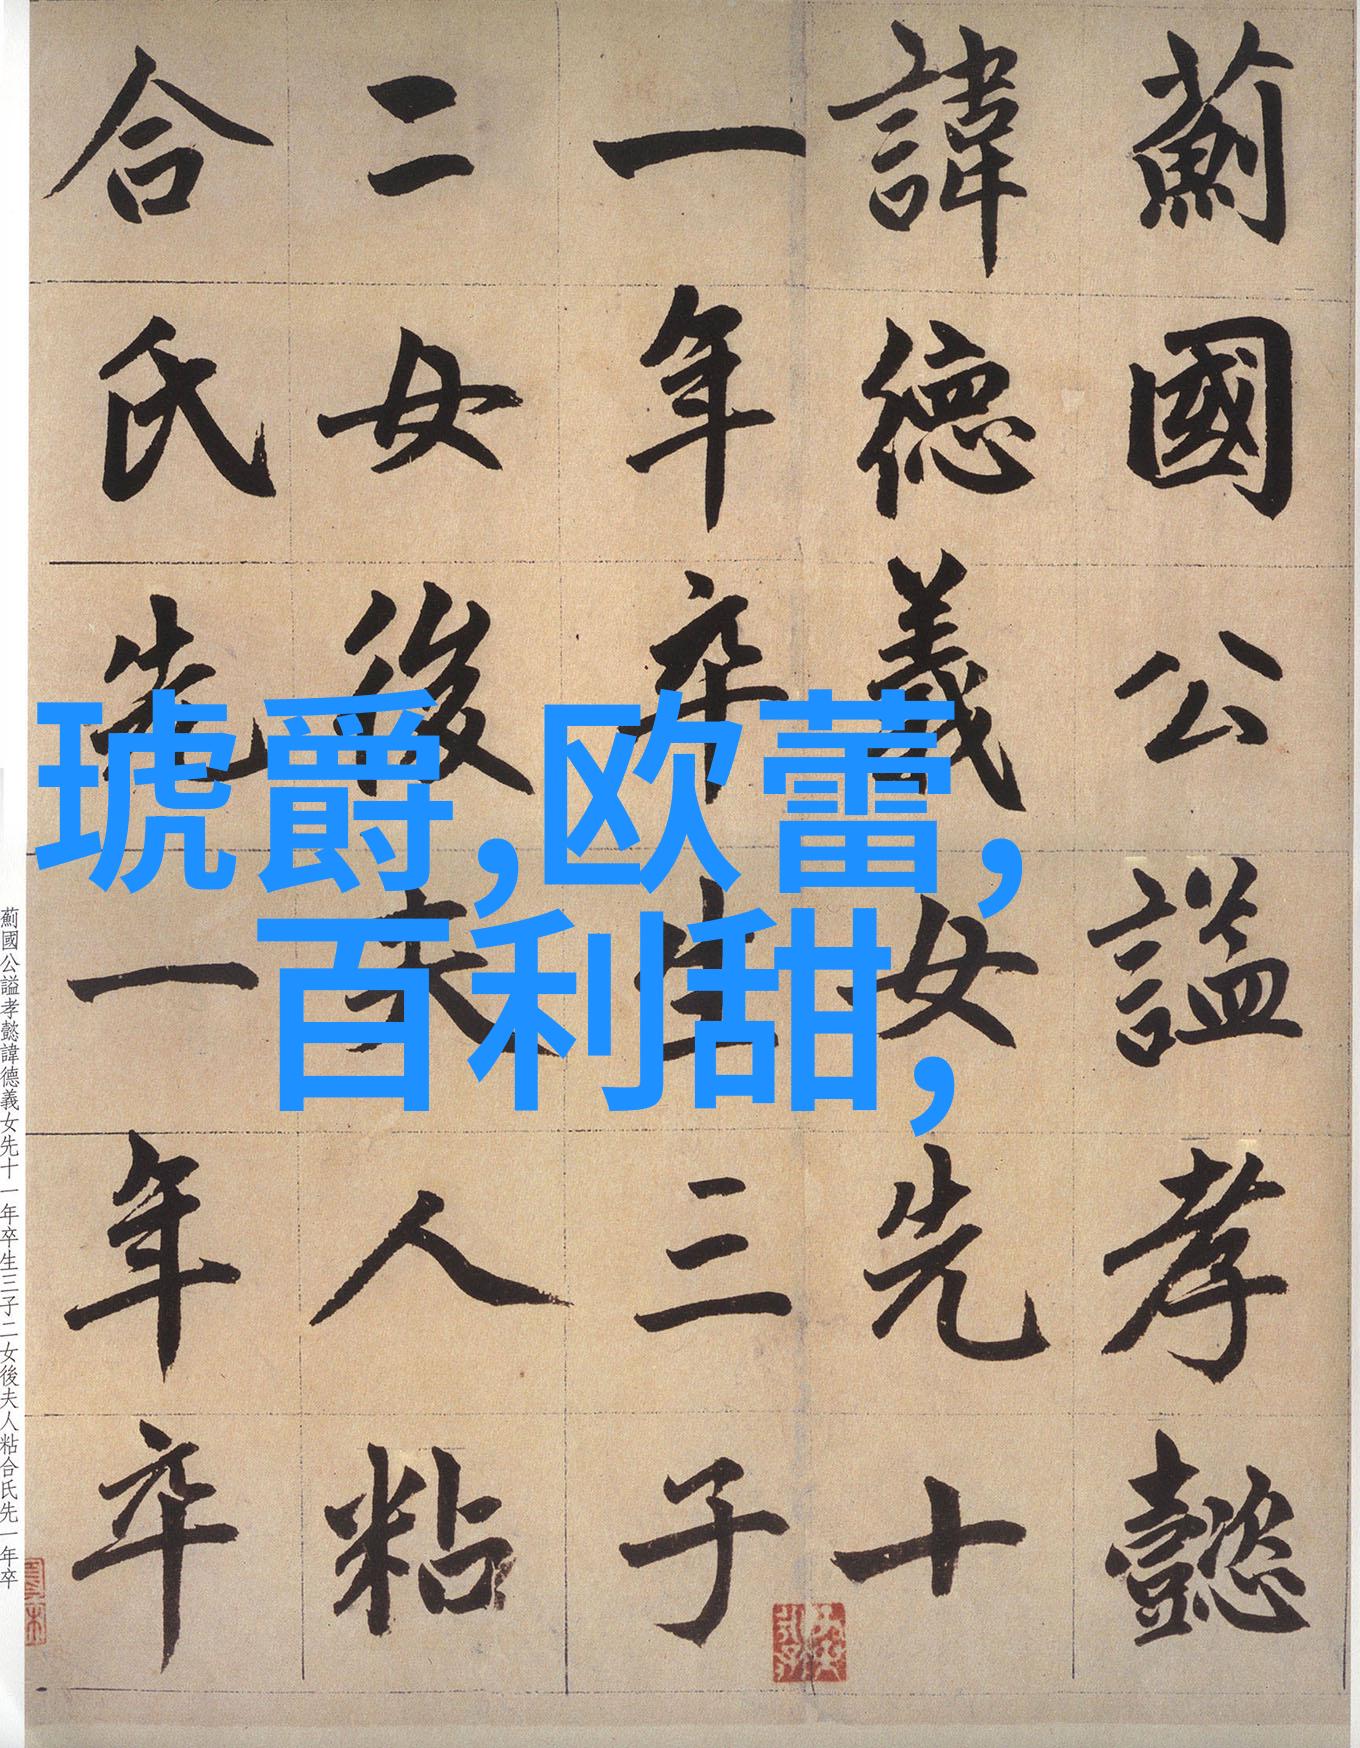 薊國公謚孝懿
諱德義女先十
一年卒生三子
二女後夫人粘
合氏先一年卒
琥爵,欧蕾,
百利甜,
薊國公謚孝懿諱德義女先十一年卒生三子二女後夫人粘合氏先一年卒